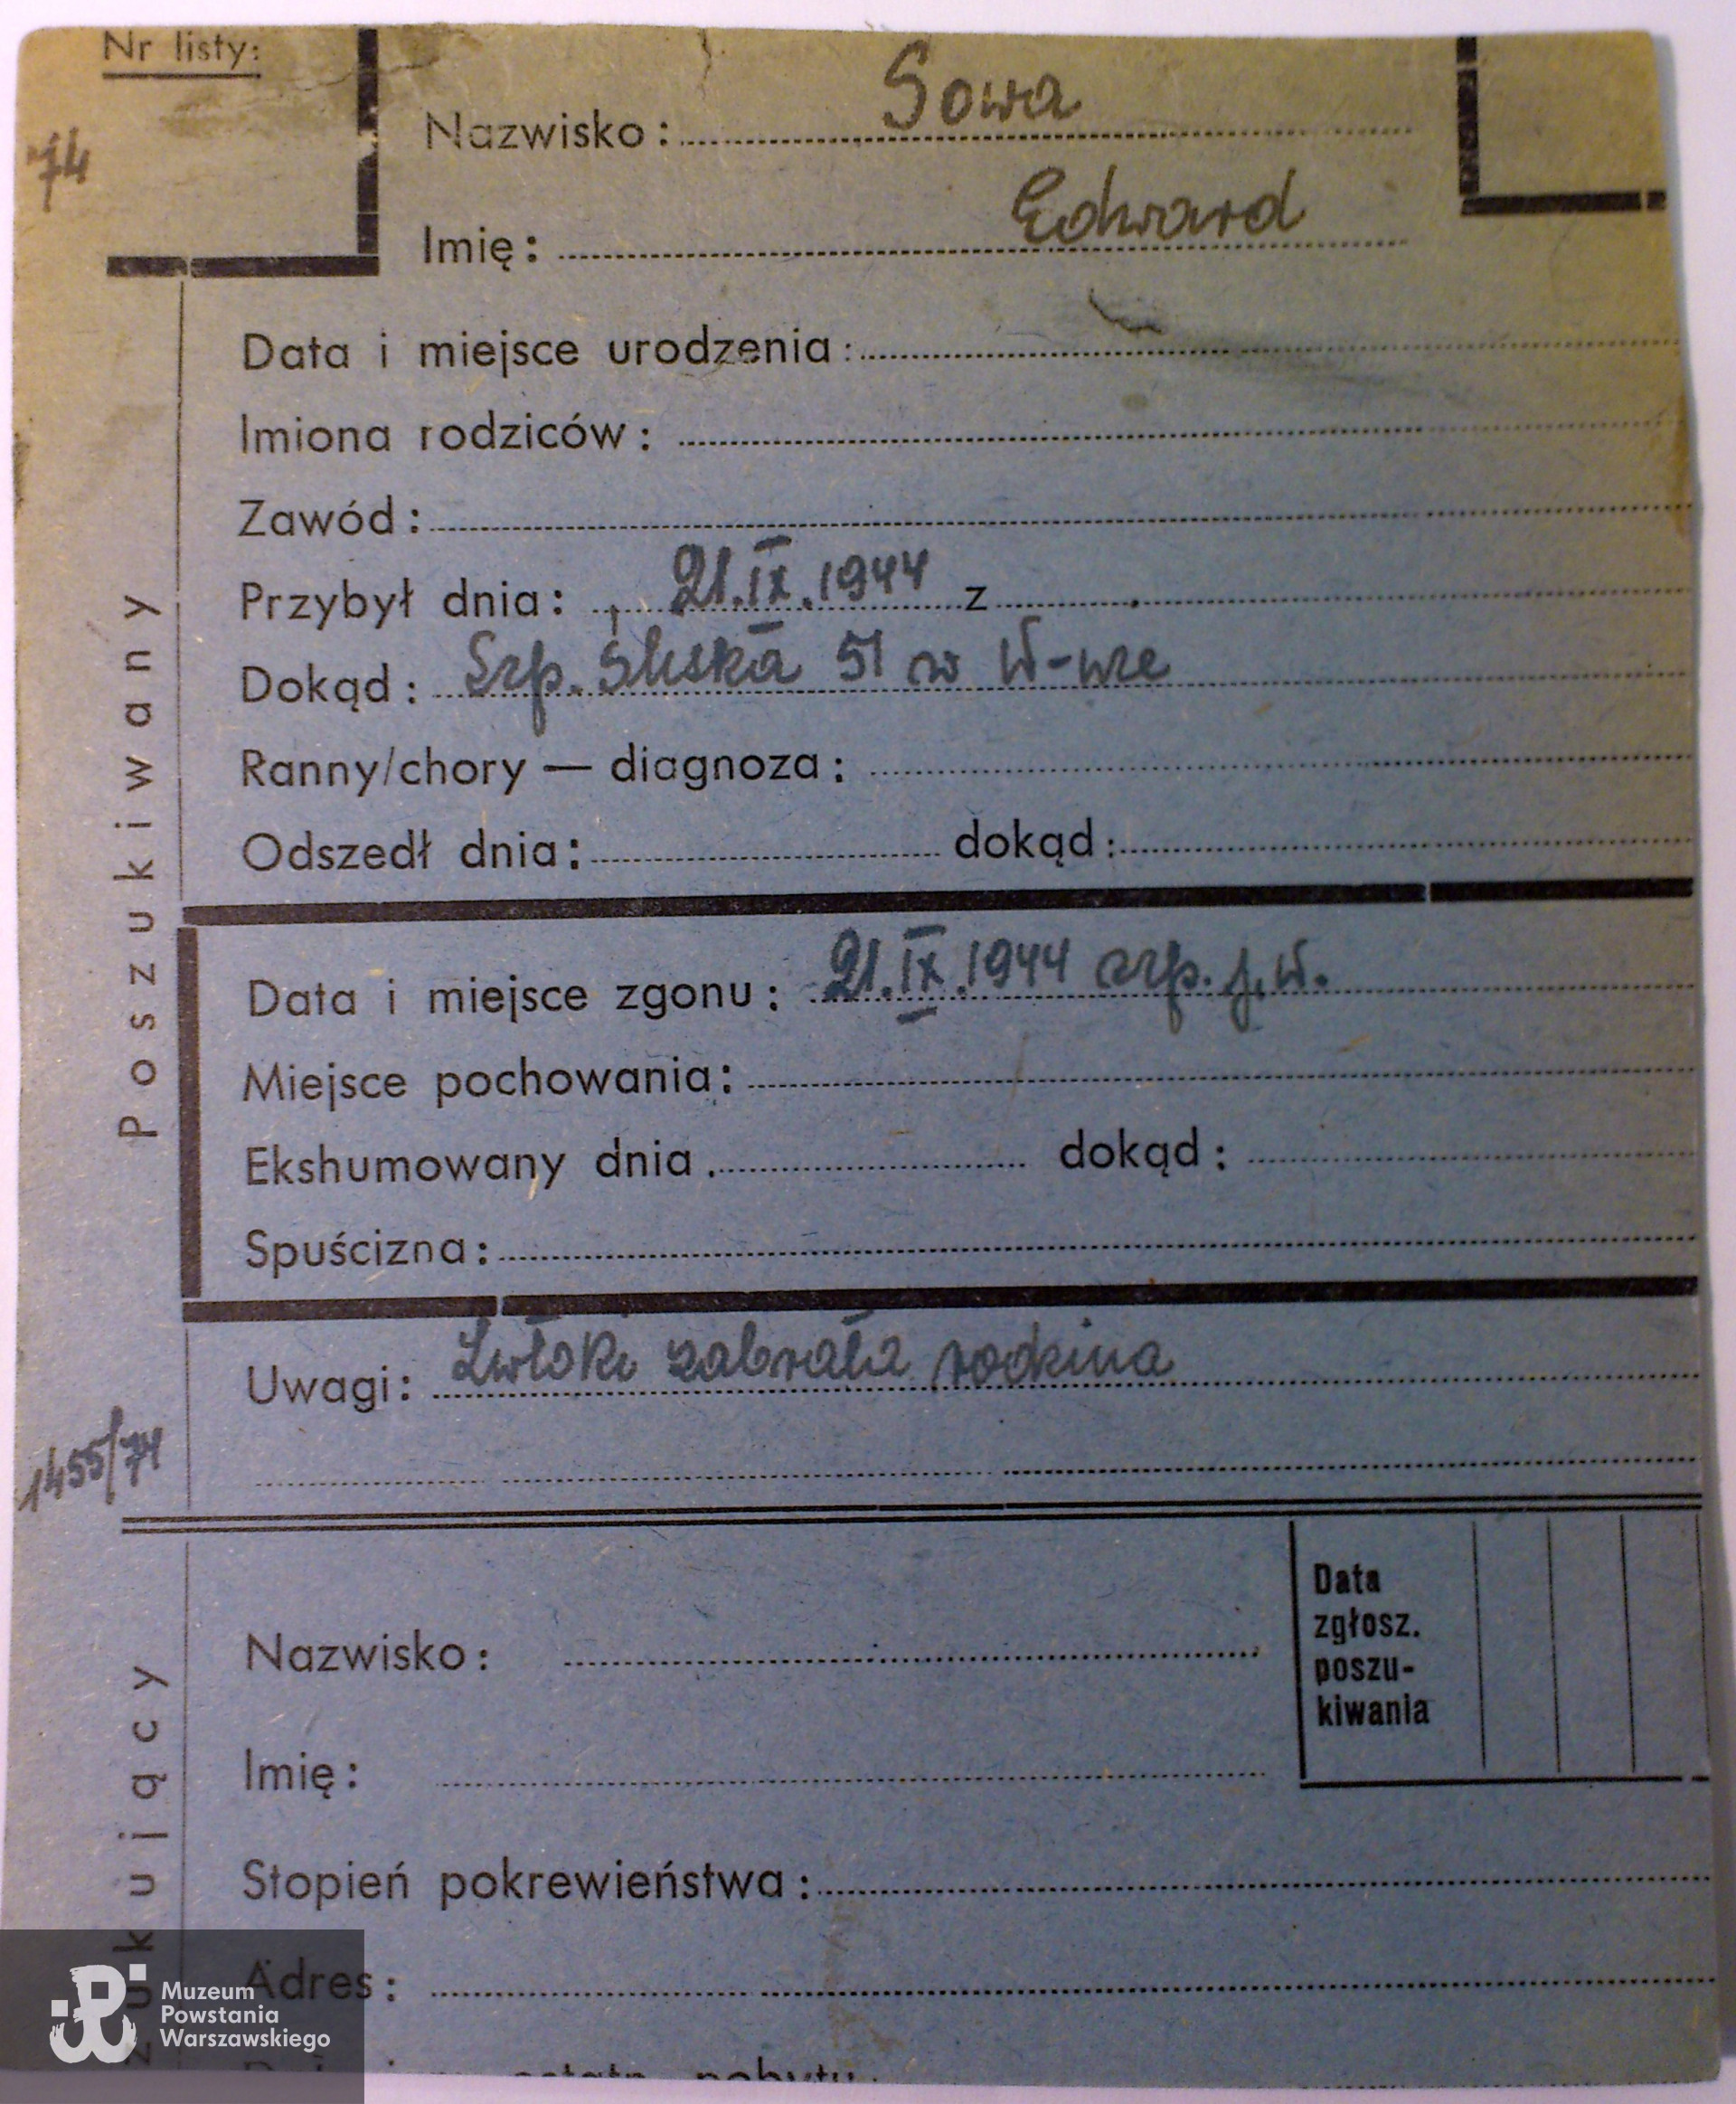 Nr listy:
74
Nazwisko: Sowa
Imię: Edward
Data i miejsce urodzenia:
Imiona rodziców:
Zawód:
Przybył dnia: 21.IX.1944 z
Dokąd: Szp. Śliska 51 w W-wie
Ranny/chory — diagnoza:
Odszedł dnia: dokąd:
Data i miejsce zgonu: 21.IX.1944 szp. j.w.
Miejsce pochowania:
Ekshumowany dnia. dokąd:
Spuścizna:
Uwagi: Zwłoki zabrała rodzina
Poszukiwany
1455/74
Nazwisko:
Imię:
Data
zgłosz.
poszu-
kiwania
Stopień pokrewieństwa:
Adres:
ostatn. pobytu:
zukujący
Muzeum
Powstania
Warszawskiego